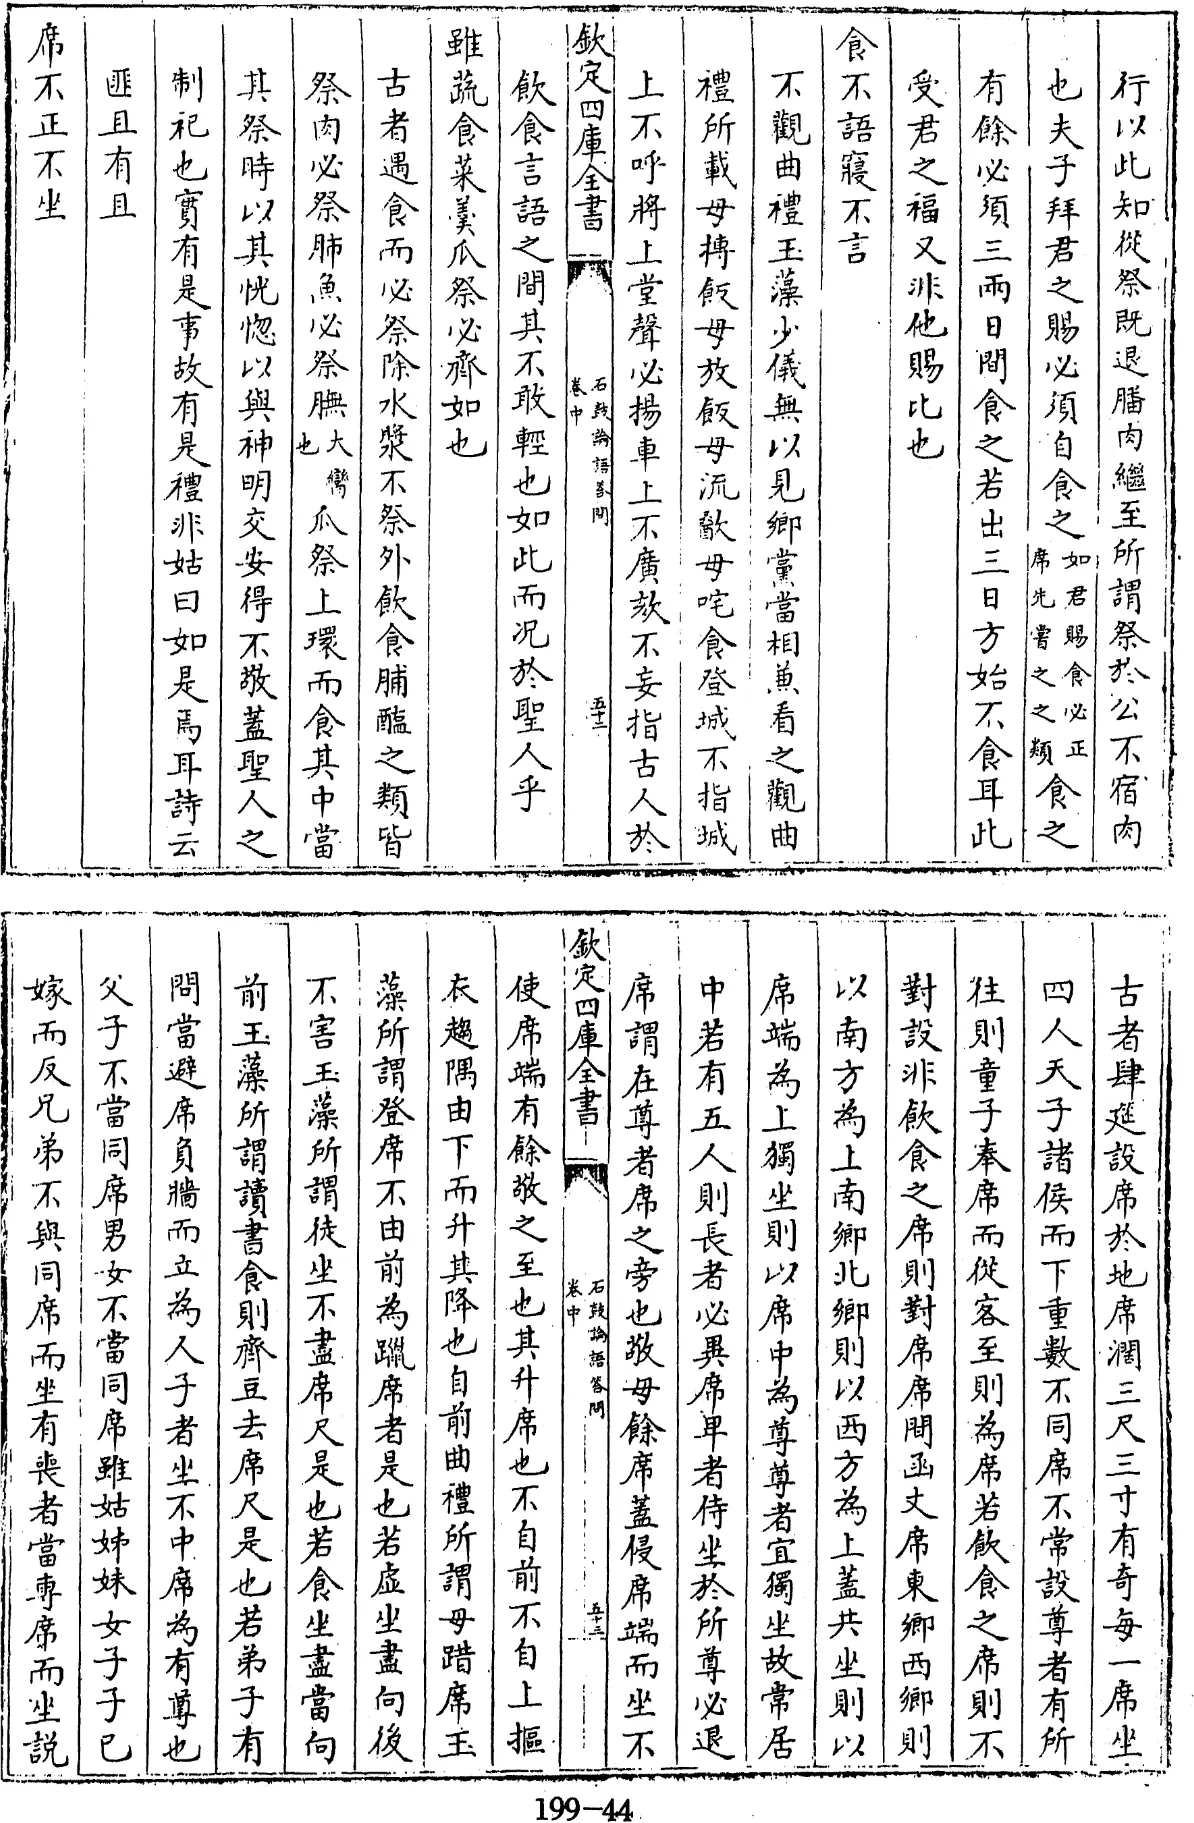 行以此知從祭既退膰肉繼至所謂祭於公不宿肉
也夫子拜君之賜必須自食之如君賜食必正席先嘗之之類食之
有餘必須三兩日間食之若出三日方始不食耳此
受君之福又非他賜比也
食不語寢不言
不觀曲禮玉藻少儀無以見鄉黨當相兼看之觀曲
禮所載毋摶飯毋放飯毋流歠毋咤食登城不指城
上不呼將上堂聲必揚車上不廣欬不妄指古人於
欽定四庫全書
石鼓論語答問
卷中
五十二
飲食言語之間其不敢輕也如此而況於聖人乎
雖蔬食菜羹瓜祭必齊如也
古者遇食而必祭除水漿不祭外飲食脯醢之類皆
祭肉必祭肺魚必祭膴大臠也瓜祭上環而食其中當
其祭時以其恍惚以與神明交安得不敬蓋聖人之
制祀也實有是事故有是禮非姑曰如是焉耳詩云
匪且有且
席不正不坐
古者肆筵設席於地席濶三尺三寸有奇每一席坐
四人天子諸侯而下重數不同席不常設尊者有所
往則童子奉席而從客至則為席若飲食之席則不
對設非飲食之席則對席席間函丈席東鄉西鄉則
以南方為上南鄉北鄉則以西方為上蓋共坐則以
席端為上獨坐則以席中為尊尊者宜獨坐故常居
中若有五人則長者必異席卑者侍坐於所尊必退
席謂在尊者席之旁也敬毋餘席蓋侵席端而坐不
欽定四庫全書
石鼓論語答問
卷中
五十三
使席端有餘敬之至也其升席也不自前不自上摳
衣趨隅由下而升其降也自前曲禮所謂毋踖席玉
藻所謂登席不由前為躐席者是也若虛坐盡向後
不害玉藻所謂徒坐不盡席尺是也若食坐盡當向
前玉藻所謂讀書食則齊豆去席尺是也若弟子有
問當避席負牆而立為人子者坐不中席為有尊也
父子不當同席男女不當同席雖姑姊妹女子子已
嫁而反兄弟不與同席而坐有喪者當專席而坐説
199-44